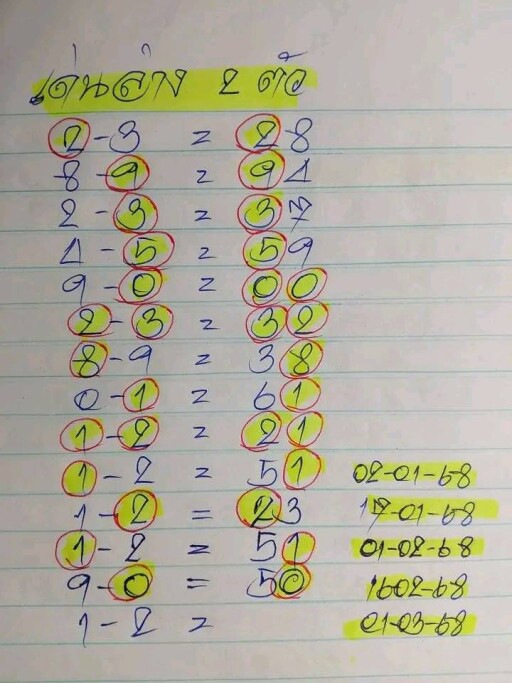 เด่นล่าง 2 ตัว
2-3 = 28
8-9 = 94
2-3 = 37
4-5 = 59
9-0 = 00
2-3 = 32
8-9 = 38
0-1 = 61
1-2 = 21
1-2 = 51 02-01-68
1-2 = 23 17-01-68
1-2 = 51 01-02-68
9-0 = 50 1602-68
1-2 = 01-03-68